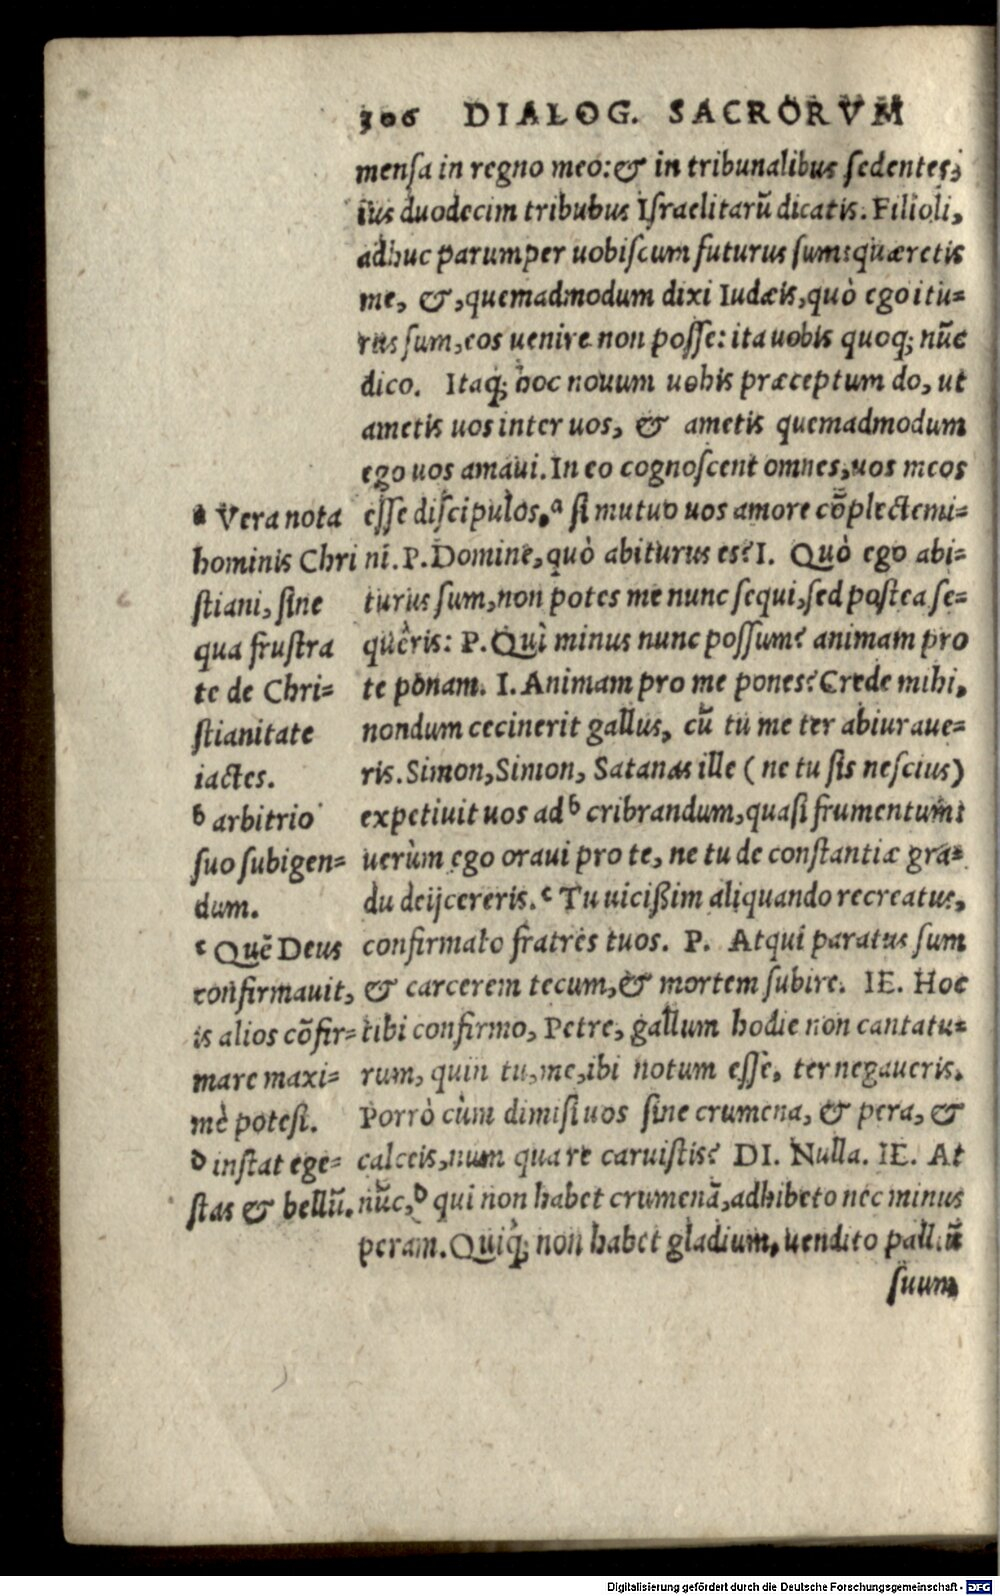 306 DIALOG. SACRORVM
menſa in regno meo: & in tribunalibus ſedentes,
ius duodecim tribubus Iſraelitarũ dicatis. Filioli,
adhuc parumper uobiſcum futurus ſum: quæretis
me, &, quemadmodum dixi Iudæis, quò ego itu=
rus ſum, eos uenire non poſſe: ita uobis quoq; nũc
dico. Itaq; hoc nouum uobis præceptum do, ut
ametis uos inter uos, & ametis quemadmodum
ego uos amaui. In eo cognoſcent omnes, uos meos
eſſe diſcipulos, ᵃ ſi mutuo uos amore cõplectemi=
ni. P. Domine, quò abiturus es? I. Quò ego abi=
turus ſum, non potes me nunc ſequi, ſed poſtea ſe=
quêris: P. Quì minus nunc poſſum? animam pro
te ponam. I. Animam pro me pones? Crede mihi,
nondum cecinerit gallus, cũ tu me ter abiuraue=
ris. Simon, Simon, Satanas ille (ne tu ſis neſcius)
expetiuit uos ad ᵇ cribrandum, quaſi frumentum:
uerùm ego oraui pro te, ne tu de conſtantiæ gra=
du deijcereris. ᶜ Tu uiciſsim aliquando recreatus,
confirmato fratres tuos. P. Atqui paratus ſum
& carcerem tecum, & mortem ſubire. IE. Hoc
tibi confirmo, Petre, gallum hodie non cantatu=
rum, quin tu, me, ibi notum eſſe, ter negaueris.
Porrò cùm dimiſi uos ſine crumena, & pera, &
calceis, num qua re caruiſtis? DI. Nulla. IE. At
nũc, ᵈ qui non habet crumenã, adhibeto nec minus
peram. Quiq; non habet gladium, uendito palliũ
ſuum
ᵃ Vera nota
hominis Chri
ſtiani, ſine
qua fruſtra
te de Chri=
ſtianitate
iactes.
ᵇ arbitrio
ſuo ſubigen=
dum.
ᶜ Quẽ Deus
confirmauit,
is alios cõfir=
mare maxi=
mè poteſt.
ᵈ inſtat ege=
ſtas & bellũ.
Digitalisierung gefördert durch die Deutsche Forschungsgemeinschaft - DFG